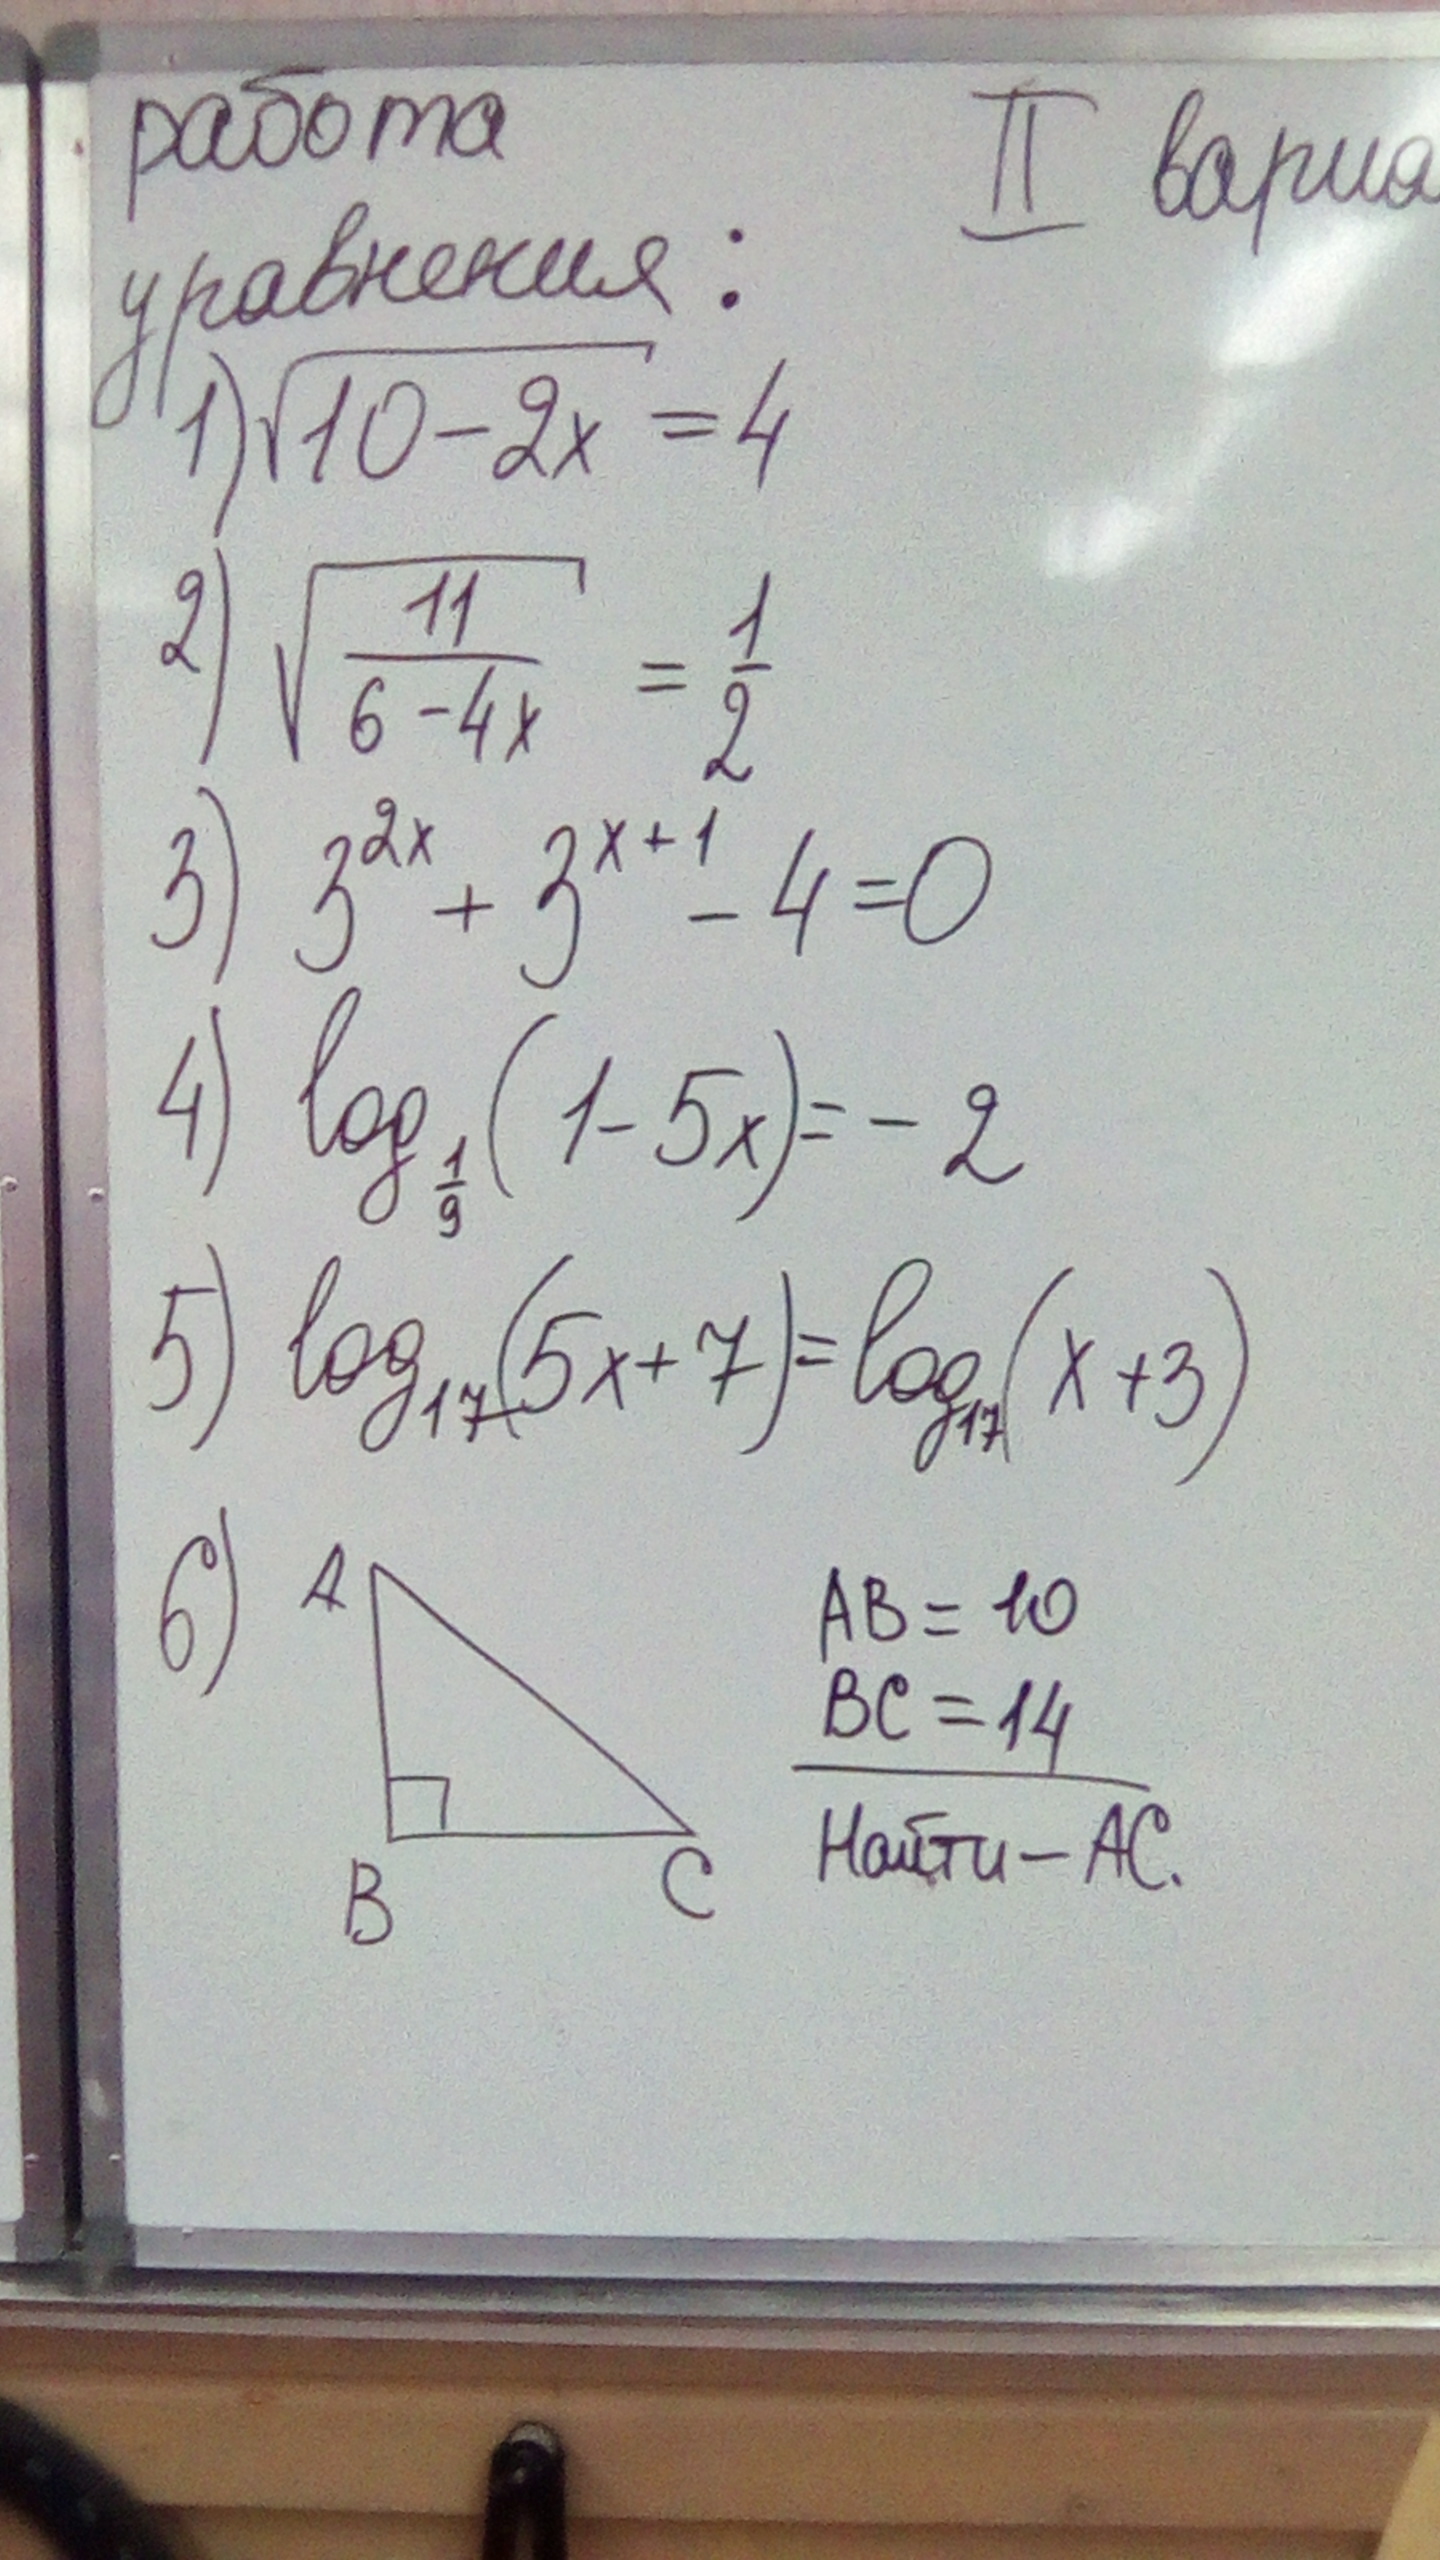 работа II вариа
уравнения:
1) √(10-2x) = 4
2) √(11/(6-4x)) = 1/2
3) 3^(2x) + 3^(x+1) - 4 = 0
4) log_(1/9) (1-5x) = -2
5) log_17 (5x+7) = log_17 (x+3)
6) A B C
AB = 10
BC = 14
Найти - AC.